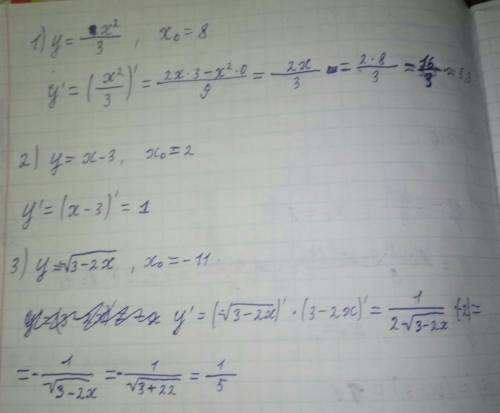 1) y = x²/3 , x₀ = 8
y' = (x²/3)' = (2x·3 − x²·0)/9 = 2x/3 = (2·8)/3 = 16/3
2) y = x-3, x₀ = 2
y' = (x-3)' = 1
3) y = √(3-2x) , x₀ = -11
y' = (√(3-2x))' · (3-2x)' = 1/(2√(3-2x)) · (-2) =
= - 1/√(3-2x) = - 1/√(3+22) = 1/5